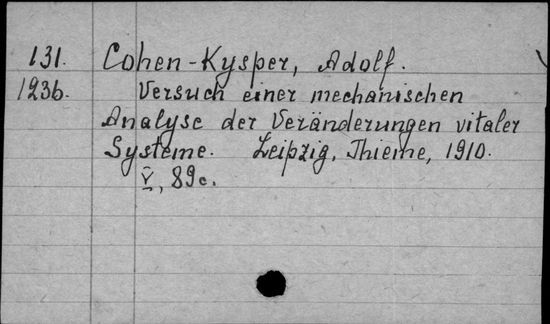 131. Cohen-Kysper, Adolf.
1236. Versuch einer mechanischen
Analyse der Veränderungen vitaler
Systeme. Leipzig, Thieme, 1910.
V, 89c.